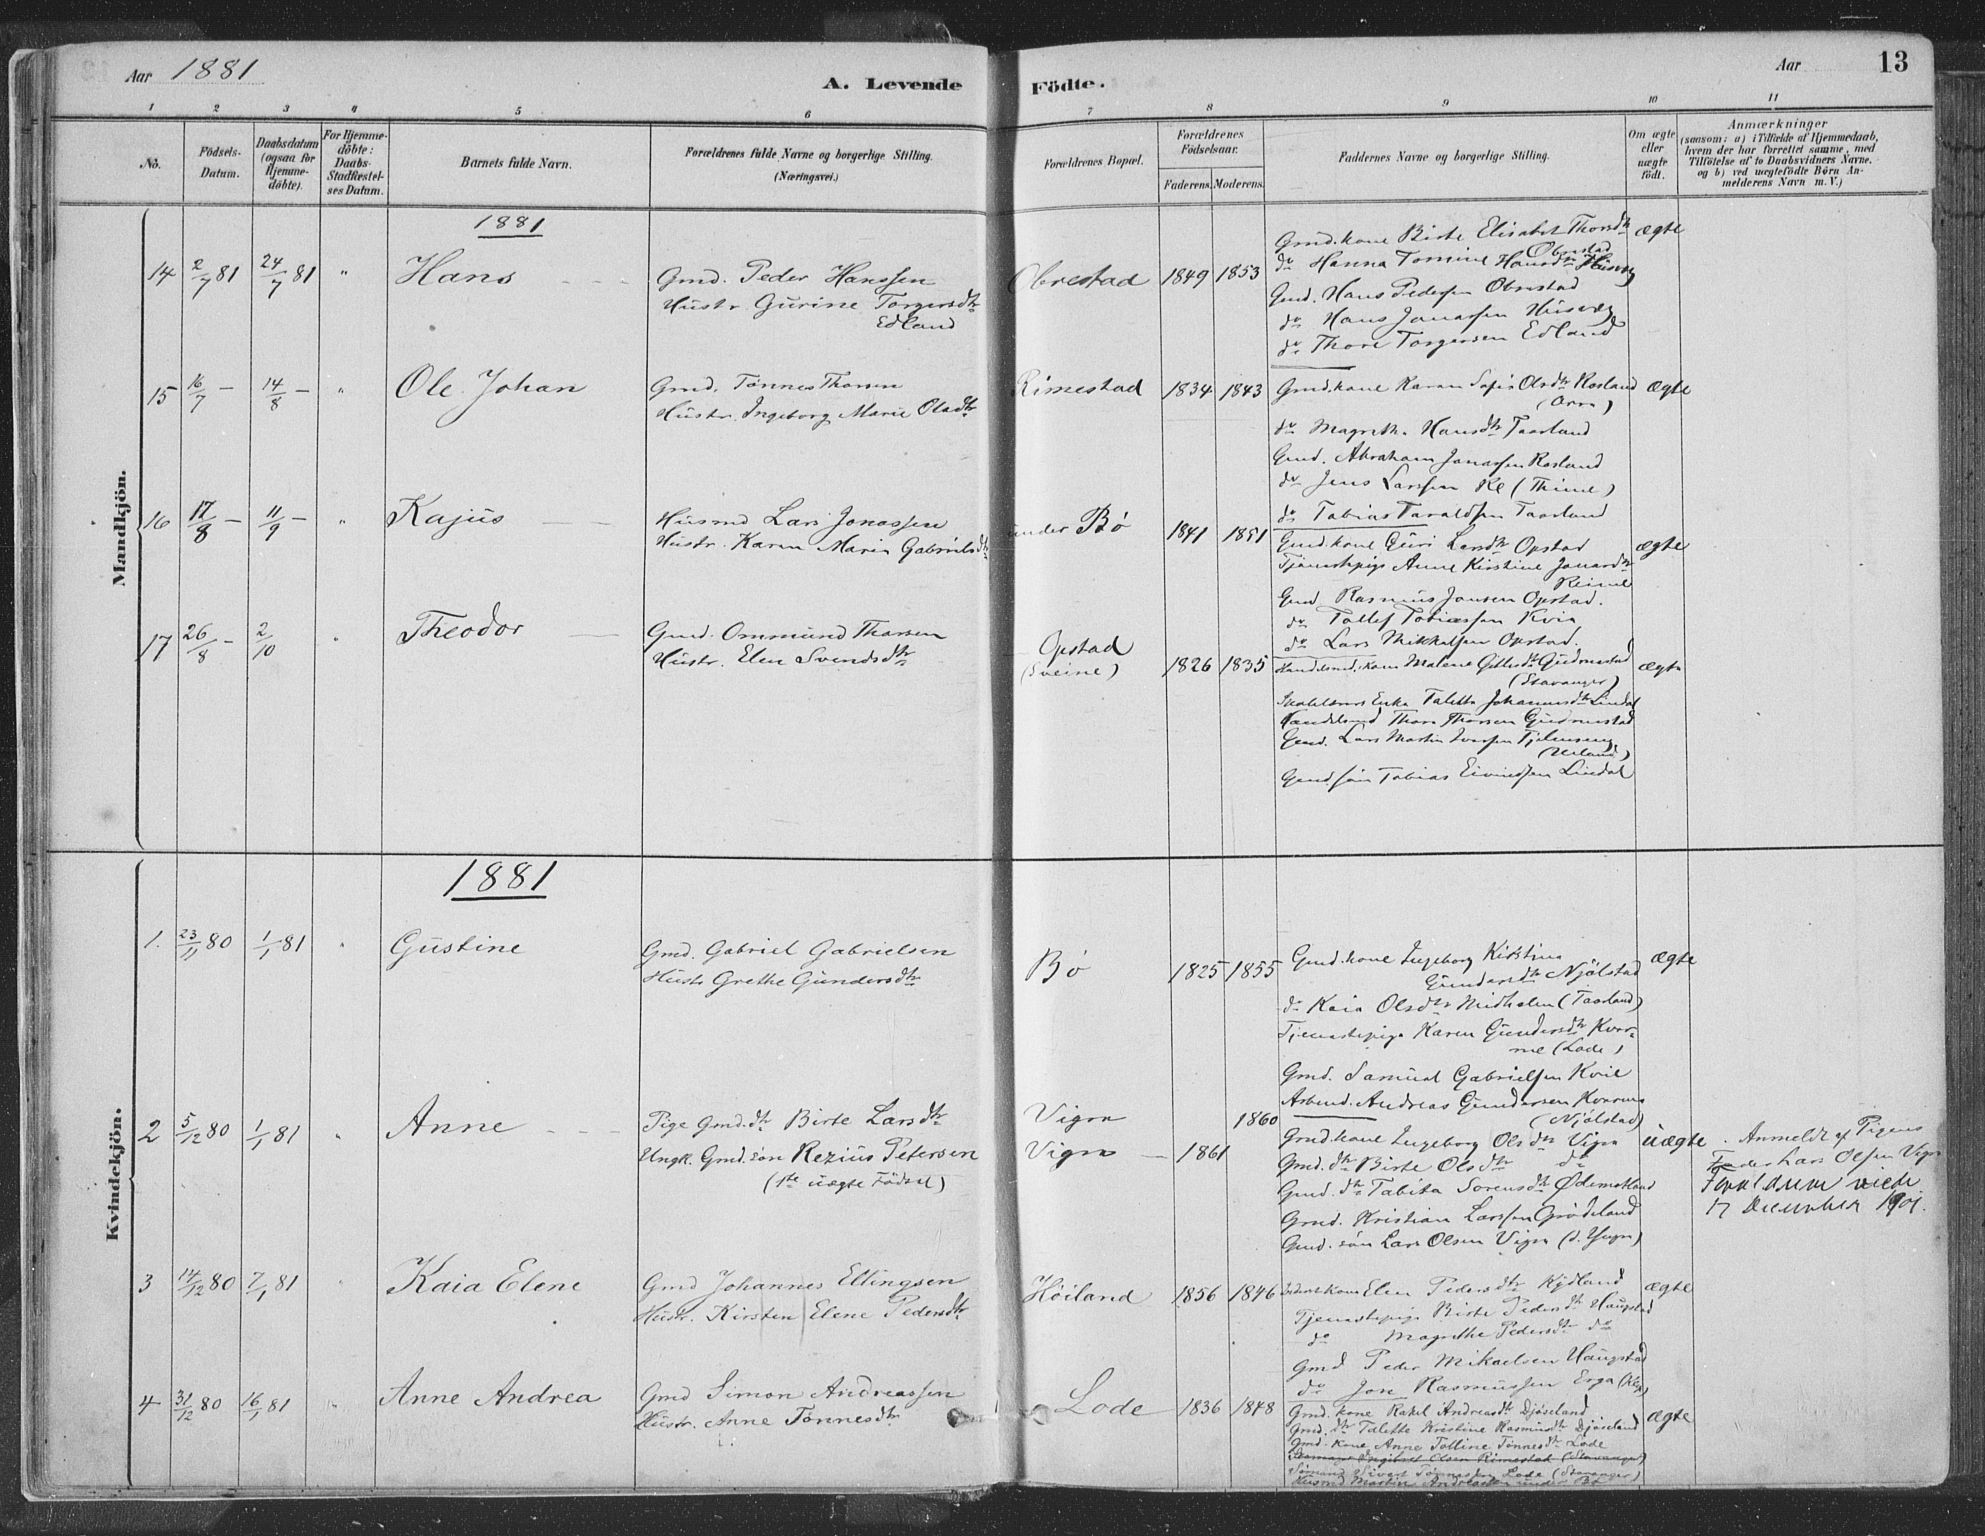 Aar 1881
A. Levende Födte.
Aar
13
1 2 3 4 5 6 7 8 9 10 11
No.
Födsels-Datum.
Daabsdatum (ogsaa for Hjemme-döbte).
For Hjemme-döbte: Daabs-Stadfæstel-ses Datum.
Barnets fulde Navn.
Forældrenes fulde Navne og borgerlige Stilling. (Næringsvei.)
Forældrenes Bopæl.
Forældrenes Födselsaar.
Faderens. Moderens.
Faddernes Navne og borgerlige Stilling.
Om ægte eller uægte födt.
Anmærkninger
(saasom: a) i Tilfælde af Hjemmedaab,
hvem der har forrettet samme, med
Tilföielse af to Daabsvidners Navne.
og b) ved uægtefödte Börn An-
melderens Navn m. V.)
Mandkjön.
1881
14 2/7 81 24/7 81 " Hans
Gmd. Peder Hanssen
Hustr Gurine Torgersdtr
Edland
Obrestad 1849 1853
Gmd. kone Birte Elisabet Thorsdtr
Obrestad
do Hanna Tomine Hansdtr Husvæg
Gmd. Hans Pedersen Obrestad
do Hans Jonassen Husvæg
do Thore Torgersen Edland
ægte
15 16/7 — 14/8 — " Ole Johan
Gmd. Tönnes Thorsen
Hustr. Ingeborg Marie Olsdtr
Rimestad 1834 1843
Gmd. kone Karen Sofie Olsdtr Rosland
(Orre)
do Magrethe Hansdtr Taarland
Gmd. Abraham Jonassen Rosland
do Jens Larssen Re (Thime)
do Tobias Taraldsen Taarland
ægte
16 17/8 — 11/9 — " Kajus
Husmd Lars Jonassen
Hustr. Karen Marie Gabrielsdtr
under Bø 1841 1851
Gmd. kone Guri Larsdtr Opstad
Tjenestepige Anne Kirstine Jonasdtr
Reime
Gmd Rasmus Jonsen Opstad.
do Tollef Tobiassen Kvia
do Lars Mikkelsen Opstad.
ægte
17 26/8 — 2/10 " Theodor
Gmd. Ommund Thorsen
Hustr. Elen Svendsdtr
Opstad
(Sveine) 1826 1835
Handelsmd. kone Malene Gitlesdtr Gudmestad
(Stavanger)
Enke Talette Johannesdtr Lindal
Handelsmd Thore Thorsen Gudmestad
Gmd. Lars Martin Iversen
Gmd. søn Tobias Eivindsen Lindal
ægte
Kvindekjön.
1881
1. 23/11 80 1/1 81 " Gustine
Gmd. Gabriel Gabrielsen
Hustr Grethe Gundersdtr
Bø 1825 1855
Gmd. kone Ingeborg Kirstine
Gundersdtr Njølstad
do Kaia Olsdtr Midholen (Taarland)
Tjenestepige Karen Gundersdtr Kvar-
me (Lode)
Gmd. Samuel Gabrielsen Kvie
Arbmd. Andreas Gundersen Kvarme
(Njølstad)
ægte
2 5/12 80 1/1 81 " Anne
Pige Gmd. dtr Birte Larsdtr
Ungk. Gmd. søn Rezius Petersen
(1ste uægte Födsel)
Vigre 1860
Vigre — 1861
Gmd. kone Ingeborg Olsdtr Vigre
Gmd. dtr Birte Olsdtr do
Gmd. dtr Tabita Sorensdtr Ødemotland
Gmd. Kristian Larssen Grødeland
Gmd. søn Lars Olsen Vigre
uægte
Anmeldt af Pigens
Fader Lars Olsen Vigre
Foreldrene viede
17 December 1901.
3 14/12 80 7/1 81 " Kaia Elene
Gmd Johannes Ellingsen
Hustr. Kirsten Elene Pedersdtr
Höiland 1856 1846
kone Elen Pedersdtr Kydland
Tjenestepige Birte Pedersdtr Haugstad
do Magrethe Pedersdtr do
Gmd Peder Mikaelsen Haugstad
do Jon Rasmussen Erga (Klep)
ægte
4 31/12 80 16/1 81 " Anne Andrea
Gmd Simon Andreassen
Hustr. Anne Tönnesdtr
Lode 1836 1848
Gmd. kone Rakel Andreasdtr Djøseland
Gmd. dtr Talette Kristine Rasmusdtr Djøseland
Gmd. kone Anne Tolline Tönnesdtr Lode
Sømand Ingebret Olsen Rimestad (Stavanger)
Sømand Sivert Tønnessen Lode (Stavanger)
Husmd Martin Andreassen under Bø
ægte